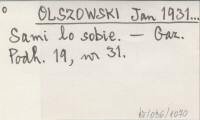 OLSZOWSKI Jan 1931...
Sami lo sobie. – Gaz.
Podh. 19, nr 31.